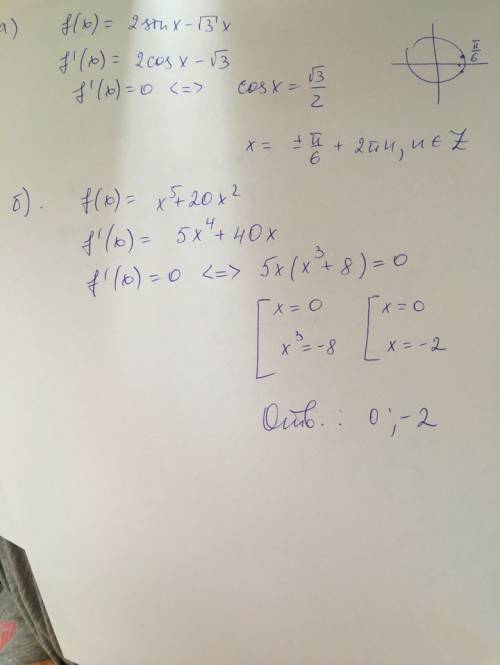 а) f(x) = 2sinx - √3 x
f'(x) = 2cosx - √3
π/6
f'(x) = 0 <=> cosx = √3/2
x = ± π/6 + 2πn, n ∈ Z
б). f(x) = x⁵ + 20x²
f'(x) = 5x⁴ + 40x
f'(x) = 0 <=> 5x(x³ + 8) = 0
[ x = 0 [ x = 0
x³ = -8 x = -2
Отв.: 0; -2